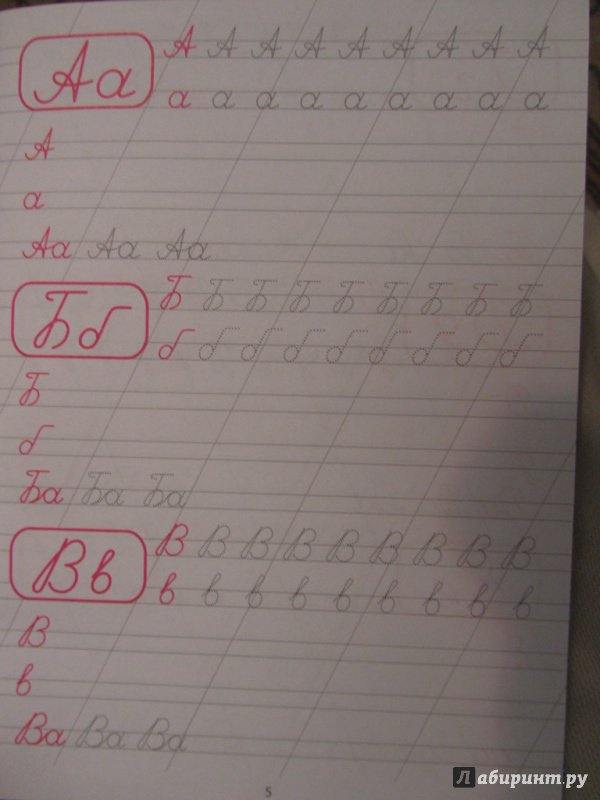 Аа
А А А А А А А А А
а а а а а а а а а
А
а
Аа Аа Аа
Бб
Б Б Б Б Б Б Б Б Б
б б б б б б б б б
Б
б
Ба Ба Ба
Вв
В В В В В В В В В
в в в в в в в в в
В
в
Ва Ва Ва
5
Лабиринт.ру